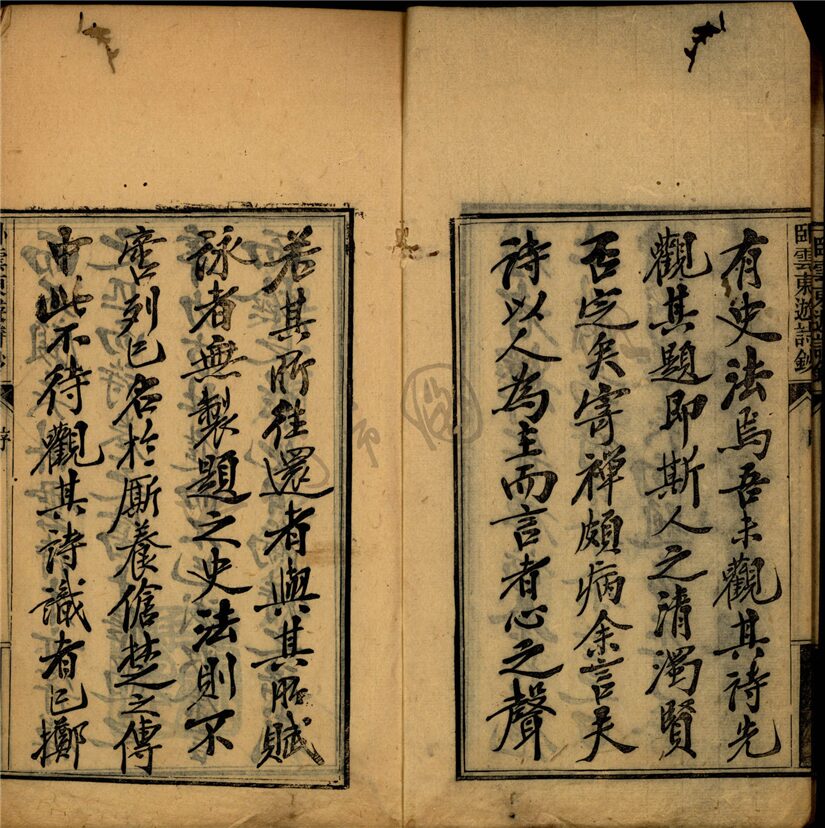 臥雲東遊詩鈔
有史法焉吾未觀其詩先
觀其題即斯人之清濁賢
否定矣寄禪頗病余言夫
詩以人為主而言者心之聲
若其所往還者與其所賦
詠者無製題之史法則不
啻列已名於厮養傖楚之傳
中此不待觀其詩識者已擲
序